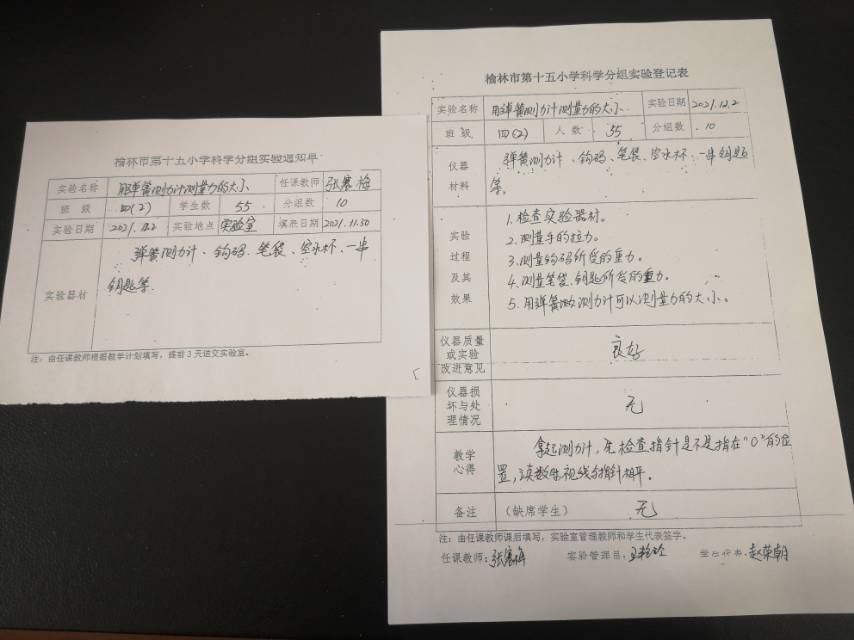 榆林市第十五小学科学分组实验通知单
实验名称 用弹簧测力计测量力的大小 任课教师 张寒梅
班级 四(2) 学生数 55 分组数 10
实验日期 2021.12.2 实验地点 实验室 填表日期 2021.11.30
实验器材 弹簧测力计、钩码、笔袋、空水杯、一串
钥匙等.
注:由任课教师根据教学计划填写,提前3天送交实验室。
榆林市第十五小学科学分组实验登记表
实验名称 用弹簧测力计测量力的大小 实验日期 2021.12.2
班级 四(2) 人数 55 分组数 10
仪器材料 弹簧测力计、钩码、笔袋、空水杯、一串钥匙
等。
实验过程及其效果
1.检查实验器材。
2.测量手的拉力。
3.测量钩码所受的重力。
4.测量笔袋、钥匙所受的重力。
5.用弹簧测力计可以测量力的大小。
仪器质量或实验改进意见 良好
仪器损坏与处理情况 无
教学心得 拿起测力计,先检查指针是不是指在"0"的位
置,读数时视线与指针相平。
备注 (缺席学生) 无
注:由任课教师课后填写,实验室管理教师和学生代表签字。
任课教师:张寒梅 实验管理员: 学生代表:赵荣朝